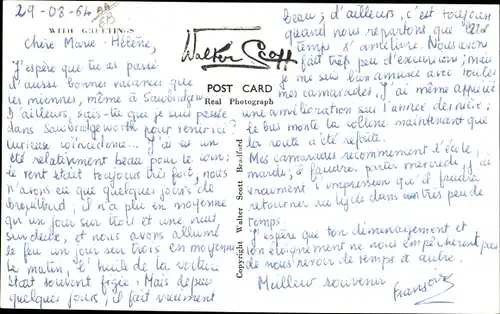 29-08-64
WITH GREETINGS
Chère Marie-Hélène,
J'espère que tu as passé
d'aussi bonnes vacances que
les miennes, même à Sawbridgew
D'ailleurs, sais-tu que je suis passée
dans Sawbridgeworth pour venir ici?
curieuse coïncidence... J'ai eu un
été relativement beau pour le coin:
le vent était toujours très fait, nous
n'avons eu que quelques jours de
brouillard; il n'a plu en moyenne
qu'un jour sur trois et une nuit
sur deux, et nous avons allumé
le feu un jour sur trois en moyenne
le matin, l'huile de la voiture
était souvent figée! Mais depuis
quelques jours, il fait vraiment
Walter Scott
POST CARD
Real Photograph
Copyright Walter Scott Bradford
beau; d'ailleurs, c'est toujours
quand nous repartons que
temps s'améliore. Nous avons
fait très peu d'excursions; mais
je me suis bien amusée avec toutes
mes camarades. J'ai même apprécié
une amélioration sur l'année dernière:
le bus monte la colline maintenant que
la route a été refaite.
Mes camarades recommencent l'école,
mardi; il faudra partir mercredi. J'ai
vraiment l'impression qu'il faudra
retourner au lycée dans très peu de
temps.
J'espère que ton déménagement et
ton éloignement ne nous empêcheront pas
de nous revoir de temps et autre.
Meilleur souvenir
Françoise